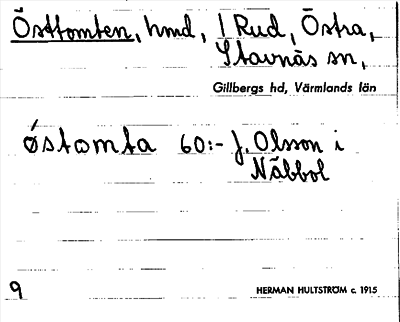 Östtomten, hmd, 1 Rud, Östra,
Stavnäs sn,
Gillbergs hd, Värmlands län
östomta 60:- J. Olsson i
Näbbol
9
HERMAN HULTSTRÖM c. 1915